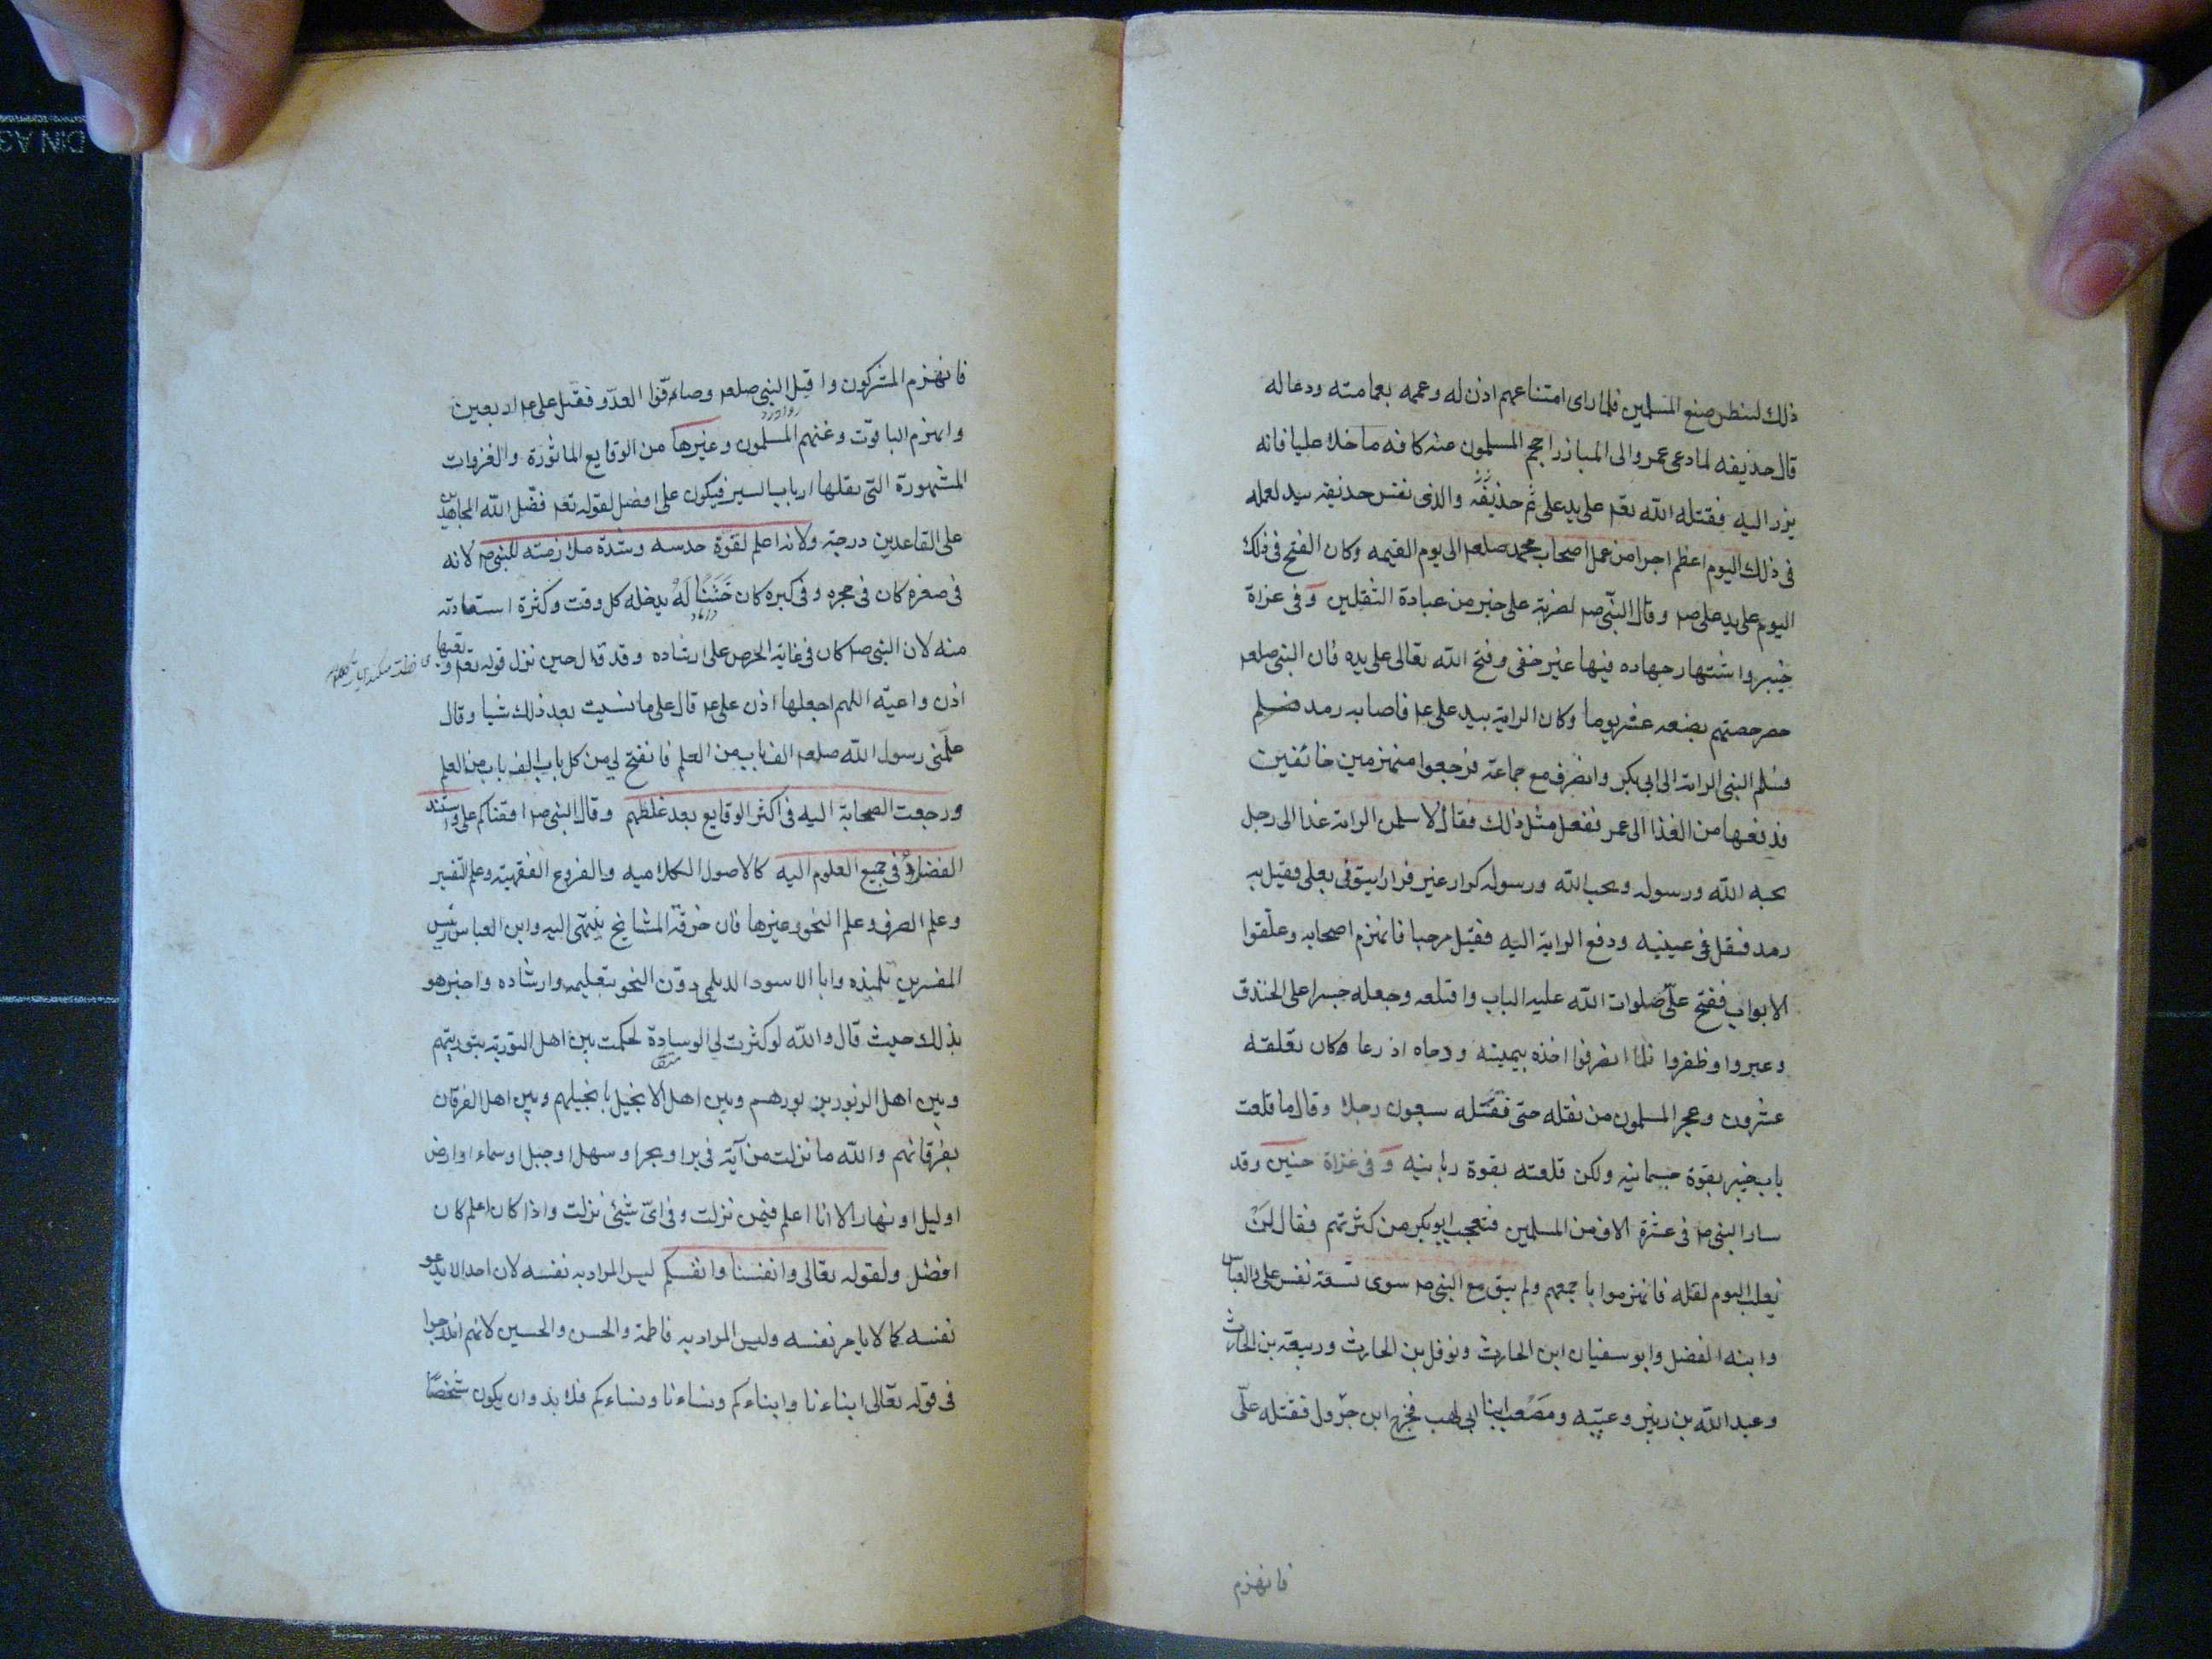 ذلك لينظر صنع المسلمين فلما راى امتناعهم اذن له وعممه بعمامته ودعا له
قال حذيفه لما دعى عمرو الى المبارزة احجم المسلمون عنه كافه ما خلا عليا فانه
برز اليه فقتله الله تعم على يد على ثم حذيفه والذى نفس حذيفه بيده لعمله
فى ذلك اليوم اعظم اجرا من عمل اصحاب محمد صلعم الى يوم القيمه وكان الفتح فى ذلك
اليوم على يد على صم وقال النبى صم لضربة على خير من عبادة الثقلين و فى غزاة
خيبر واشتهار جهاده فيها غير خفى وفتح الله تعالى على يده فان النبى صلعم
حصر حصنهم بضعه عشر يوما وكان الراية بيد على عم فاصابه رمد
فسلم النبى الراية الى ابى بكر وانصرف مع جماعة فرجعوا منهزمين خائفين
فدفعها من الغذا الى عمر ففعل مثل ذلك فقال لاسلمن الراية غدا الى رجل
يحبه الله ورسوله ويحب الله ورسوله كرار غير فرار ايتونى بعلى فقيل به
رمد فتفل فى عينيه ودفع الراية اليه فقتل مرحبا فانهزم اصحابه وغلقوا
الابواب ففتح على صلوات الله عليه الباب واقتلعه وجعله جسرا على الخندق
وعبروا وظفروا فلما انصرفوا اخذه بيمينه ودحاه اذرعا وكان يغلقه
عشرون وعجز المسلمون من نقله حتى نقله سبعون رجلا وقال ما قلعت
باب خيبر بقوة جسمانيه ولكن قلعته بقوة ربانيه و فى غزاة حنين وقد
سار النبى صم فى عشرة الاف من المسلمين فتعجب ابو بكر من كثرتهم فقال لن
نغلب اليوم لقله فانهزموا باجمعهم ولم يبق مع النبى صم سوى تسعة نفر على والعباس
وابنه الفضل وابو سفيان ابن الحارث ونوفل بن الحارث وربيعة بن الحارث
وعبد الله بن زبير وعتبه ومصعب ابنا ابى لهب فخرج ابن جرول فقتله على
فانهزم
فانهزم المشركون واقبل النبى صلعم وصادفوا العدو فقتل على عم اربعين
وانهزم الباقون وغنمهم المسلمون وغيرها من الوقايع الماثورة والغزوات
المشهورة التى نقلها ارباب السير فيكون على افضل لقوله تعم فضل الله المجاهدين
على القاعدين درجة ولانه اعلم لقوة حدسه وشدة ملازمته للنبى صم لانه
فى صغره كان فى حجره و فى كبره كان ختنا له يدخله كل وقت وكثرة استفادته
داماد
منه لان النبى صم كان فى غاية الحرص على ارشاده وقد قال حين نزل قوله تعم وتعيها
اذن واعية اللهم اجعلها اذن على عم قال على ما نسيت بعد ذلك شيا وقال
علمنى رسول الله صلعم الف باب من العلم فانفتح لى من كل باب الف باب من العلم
ورجعت الصحابة اليه فى اكثر الوقايع بعد غلطهم وقال النبى صم اقضاكم على واستند
الفضلاء فى جميع العلوم اليه كالاصول الكلاميه والفروع الفقهية وعلم التفسير
وعلم الصرف وعلم النحو وغيرها فان خرقة المشايخ ينتهى اليه وابن العباس رئيس
المفسرين تلميذه وابا الاسود الديلمى دون النحو بتعليمه وارشاده واخبر هو
بذلك حيث قال والله لو كثرت لى الوسادة لحكمت بين اهل التورية بتوريتهم
متكا
وبين اهل الزبور بزبورهم وبين اهل الانجيل بانجيلهم وبين اهل الفرقان
بفرقانهم والله ما نزلت من آية فى برا وبحرا وسهل او جبل او سماء او ارض
او ليل او نهار الا انا اعلم فيمن نزلت وفى اى شيئ نزلت واذا كان اعلم كان
افضل ولقوله تعالى وانفسنا وانفسكم ليس المراد به نفسه لان احدا لا يدعو
نفسه كما لا يامر نفسه وليس المراد به فاطمة والحسن والحسين لانهم اندرجوا
فى قوله تعالى ابناءنا وابناءكم ونساءنا ونساءكم فلابد وان يكون شخصا